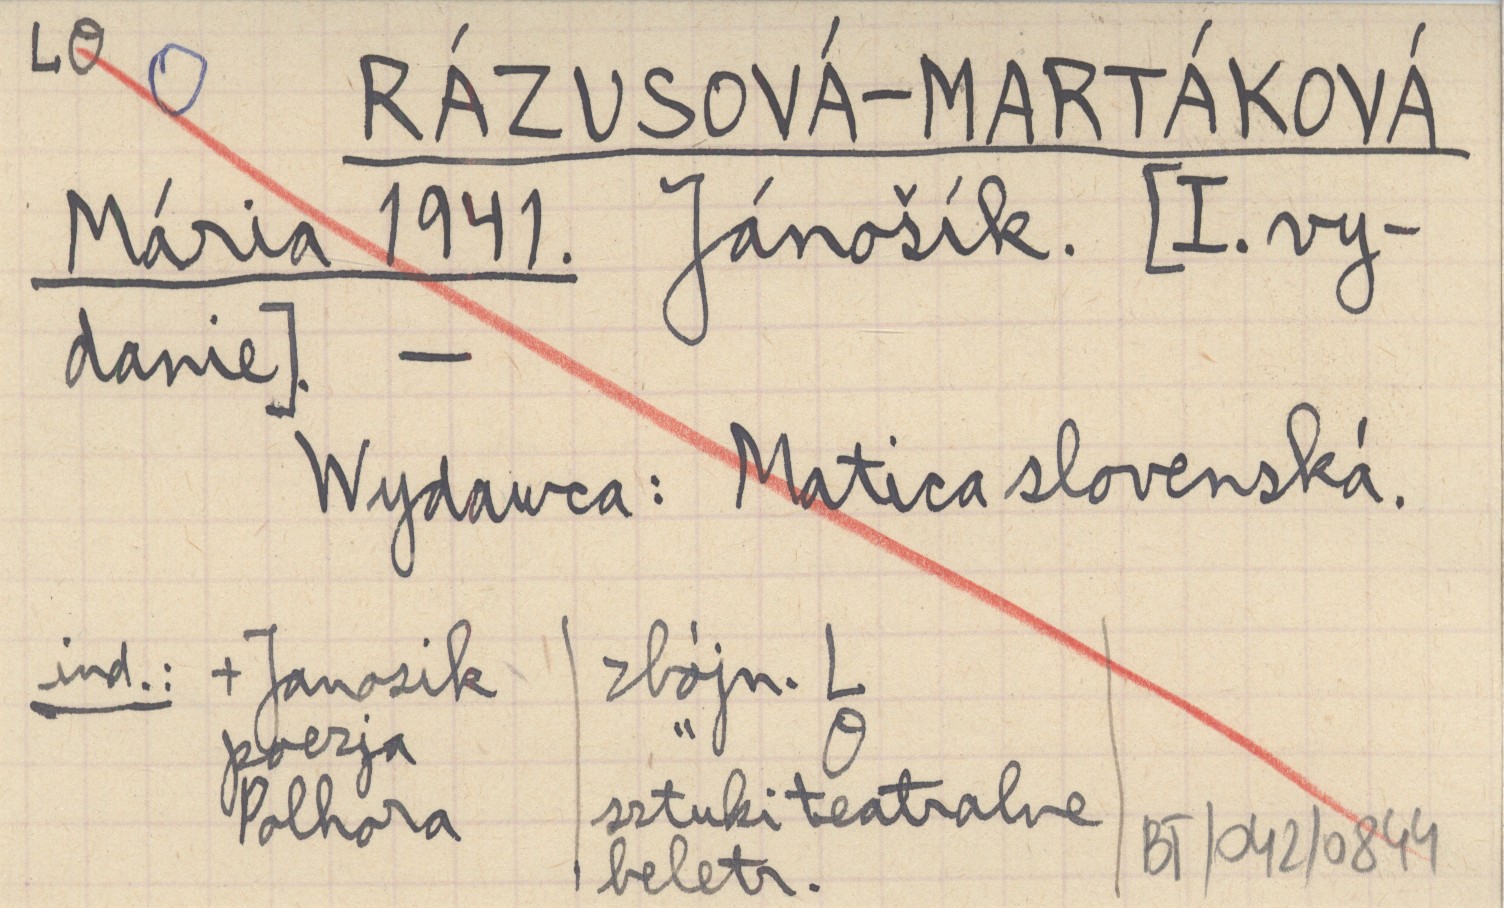 LO O RÁZUSOVÁ-MARTÁKOVÁ
Mária 1941. Jánošík. [I. vy-
danie]. —
Wydawca: Matica slovenská.
ind.: + Janosik | zbójn. L |
poezja | " O |
Polhora | sztuki teatralne |
| beletr. | BT/042/0844